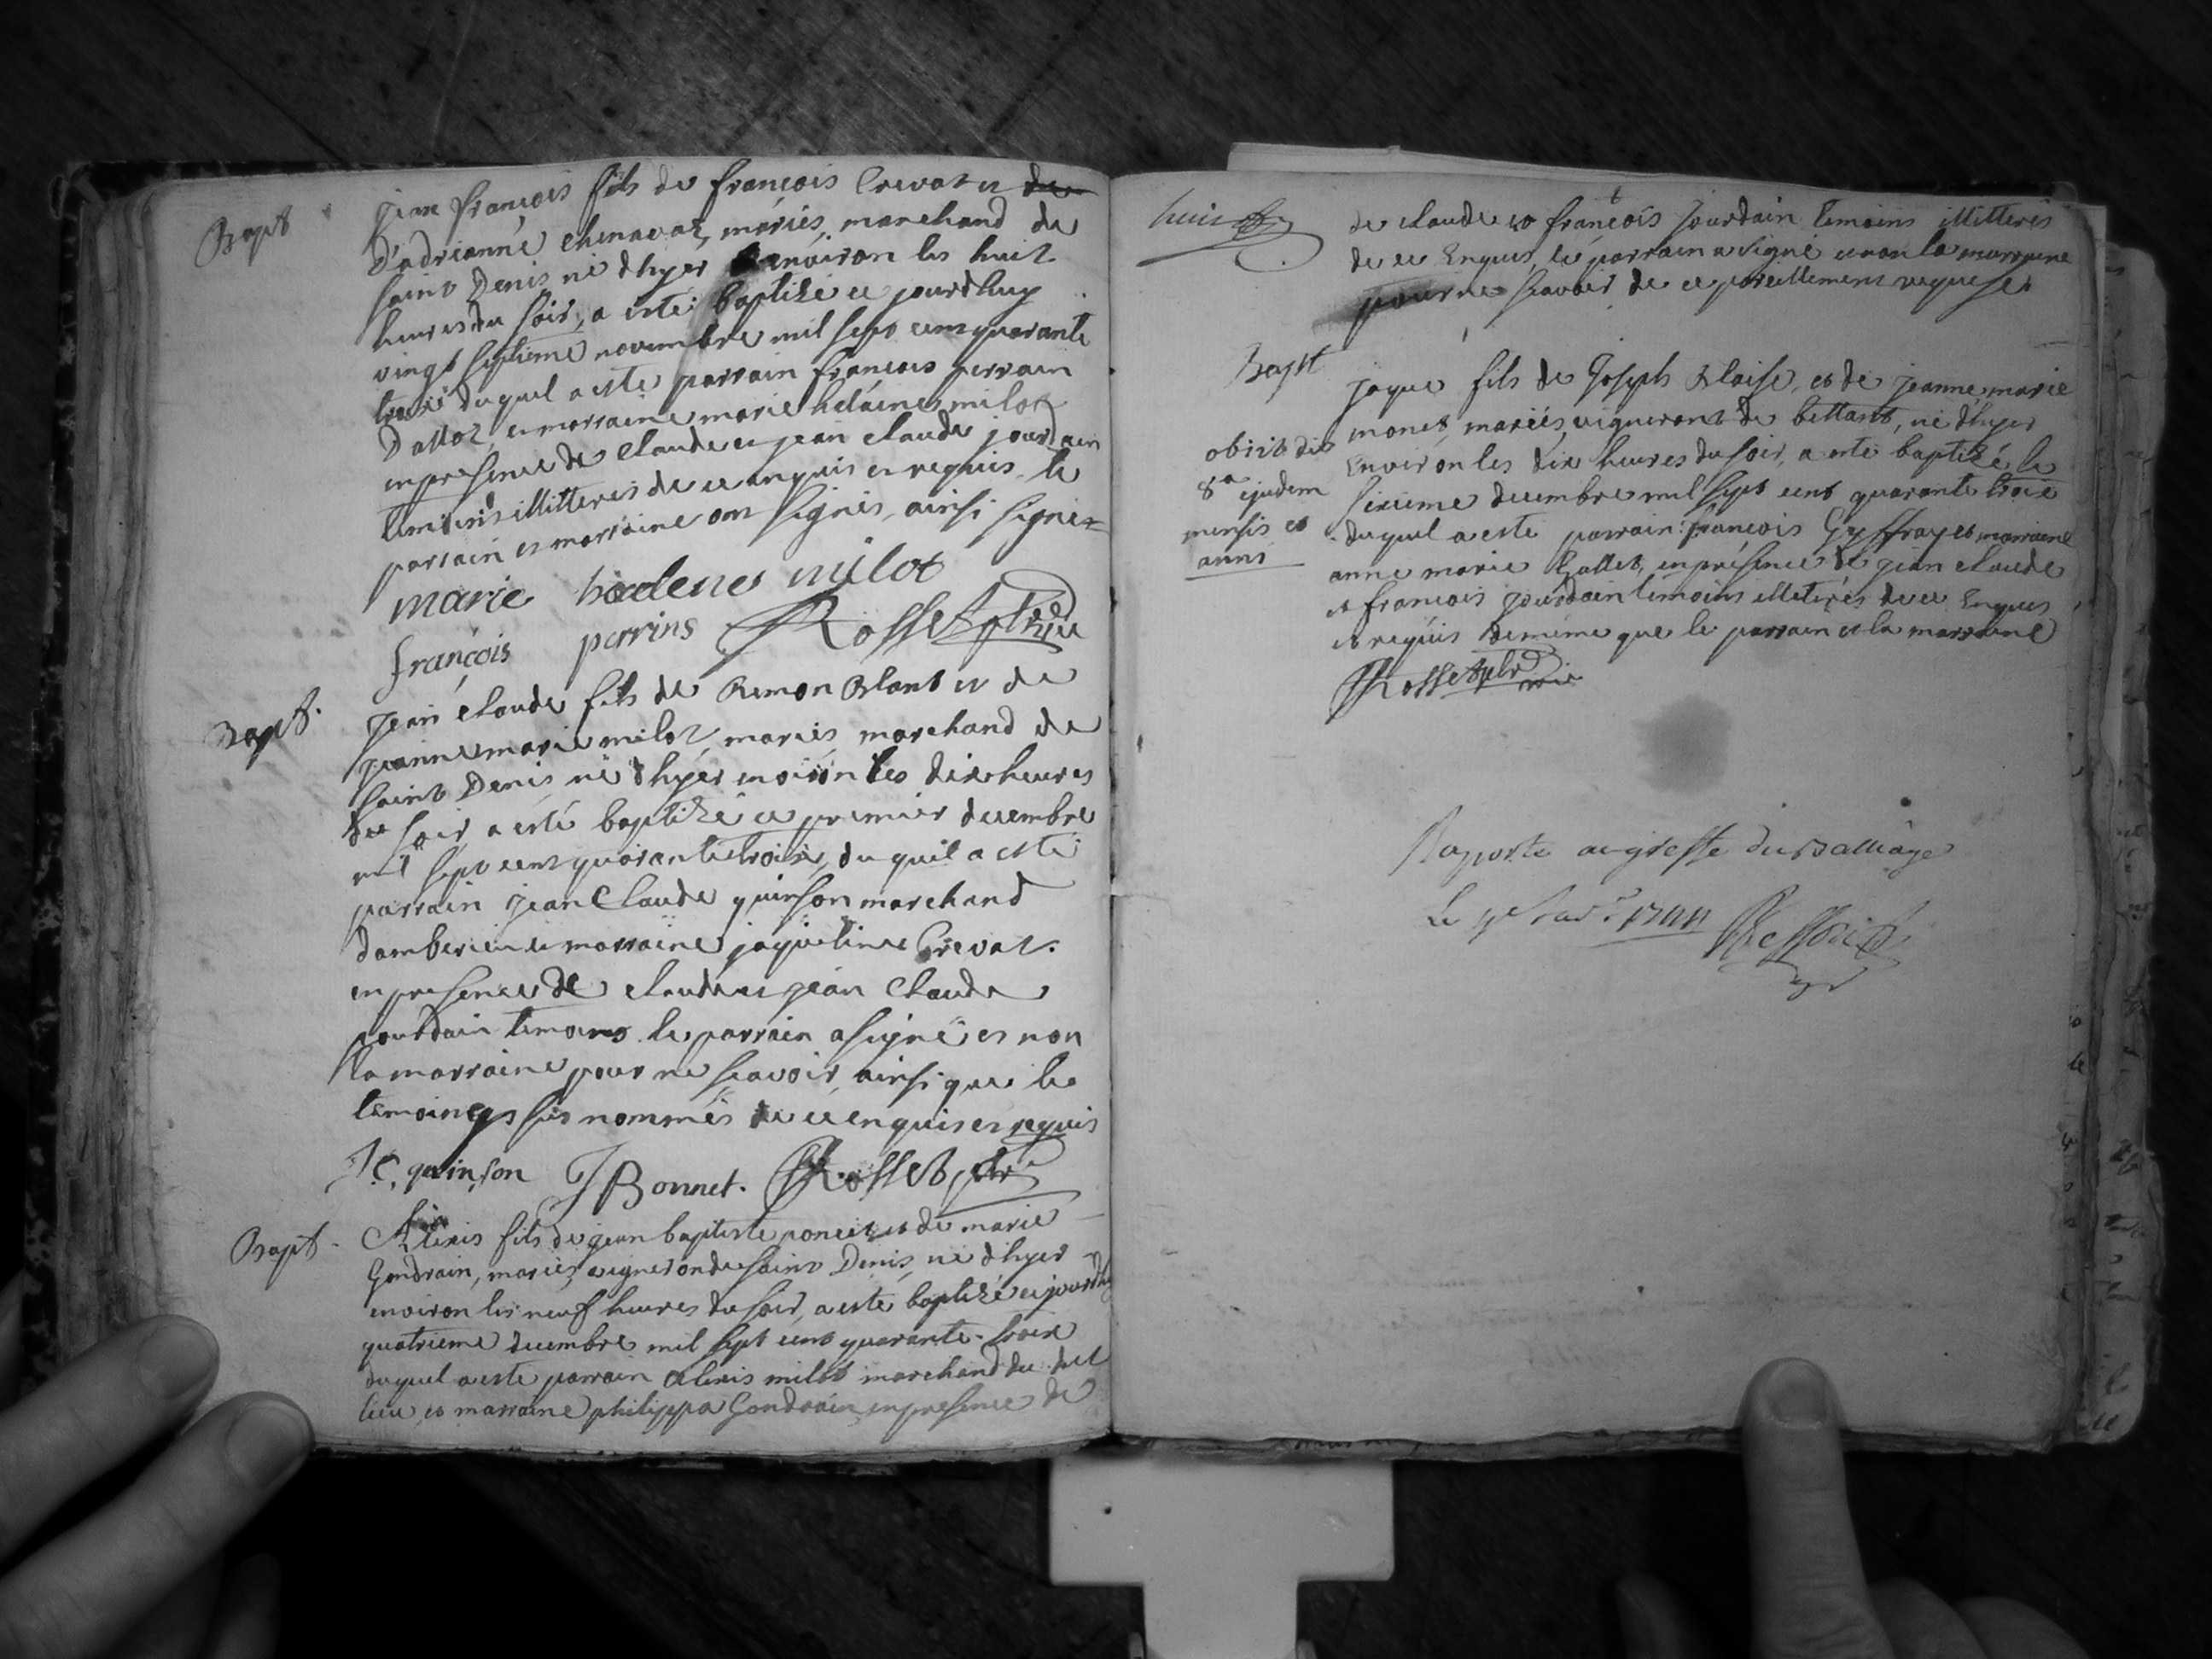 Bapt
jean françois fils de françois Crevat et
D'adrianne chenavaz, mariés, marchand de
saint Denis né d'hyer environ les huit
heures du soir, a esté baptizé ce jourdhuy
vingt septieme novembre mil sept cent quarante
trois duquel a este parrain francois perrain
et marraine marie helaine milot
en presence de Claude et jean claude jourdain
temoins illitteres de ce enquis et requis le
parrain et marraine ont signés, ainsi signés
marie hælene milot
françois perrins Rosset ptre
Bapt.
Jean claude fils de Remon Blanc et de
jeanne marie milot, mariés, marchand de
saint Denis, né d'hyer environ les dix heures
du soir, a esté baptizé ce premier decembre
mil sept cent quarante trois, duquel a esté
parrain jean Claude quinson marchand
damberieu et marraine jaqueline Crevat.
en presence de claude et jean Claude
jourdain temoins le parrain a signé et non
la marraine pour ne scavoir, ainsi que les
temoings sus nommés de ce enquis et requis
J. C. quinson J Bonnet. Rosset ptre
Bapt.
Alexis fils de jean baptiste poncet et de marie
Gondrain, mariés, vigneron de saint Denis, né d'hyer
environ les neuf heures du soir, a esté baptizé ce jourdhuy
quatrieme decembre mil sept cent quarante-trois
duquel a este parrain Alexis milot marchand du dit
lieu, et marraine philippa Gondrain, en presence de
huit
de claude et françois Jourdain temoins illitterés
de ce Enquis, le parrain a signé et non la marraine
pour ne scavoir de ce pareillement requise
Bapt
jaque fils de Joseph Blaise, et de jeanne marie
monet, mariés, vigneront de bettant, né d'hyer
Environ les dix heures du soir, a esté baptizé le
sixieme decembre mil sept cent quarante trois
duquel a este parrain françois Geffray et marraine
anne marie Gallet, en présence de jean claude
et francois jourdain temoins illeterés de ce Enquis
et requis de meme que le parrain et la marraine
Rosset ptre
obiit die
8a ejusdem
mensis et
anni
Raporté au greffe du Balliage
Le